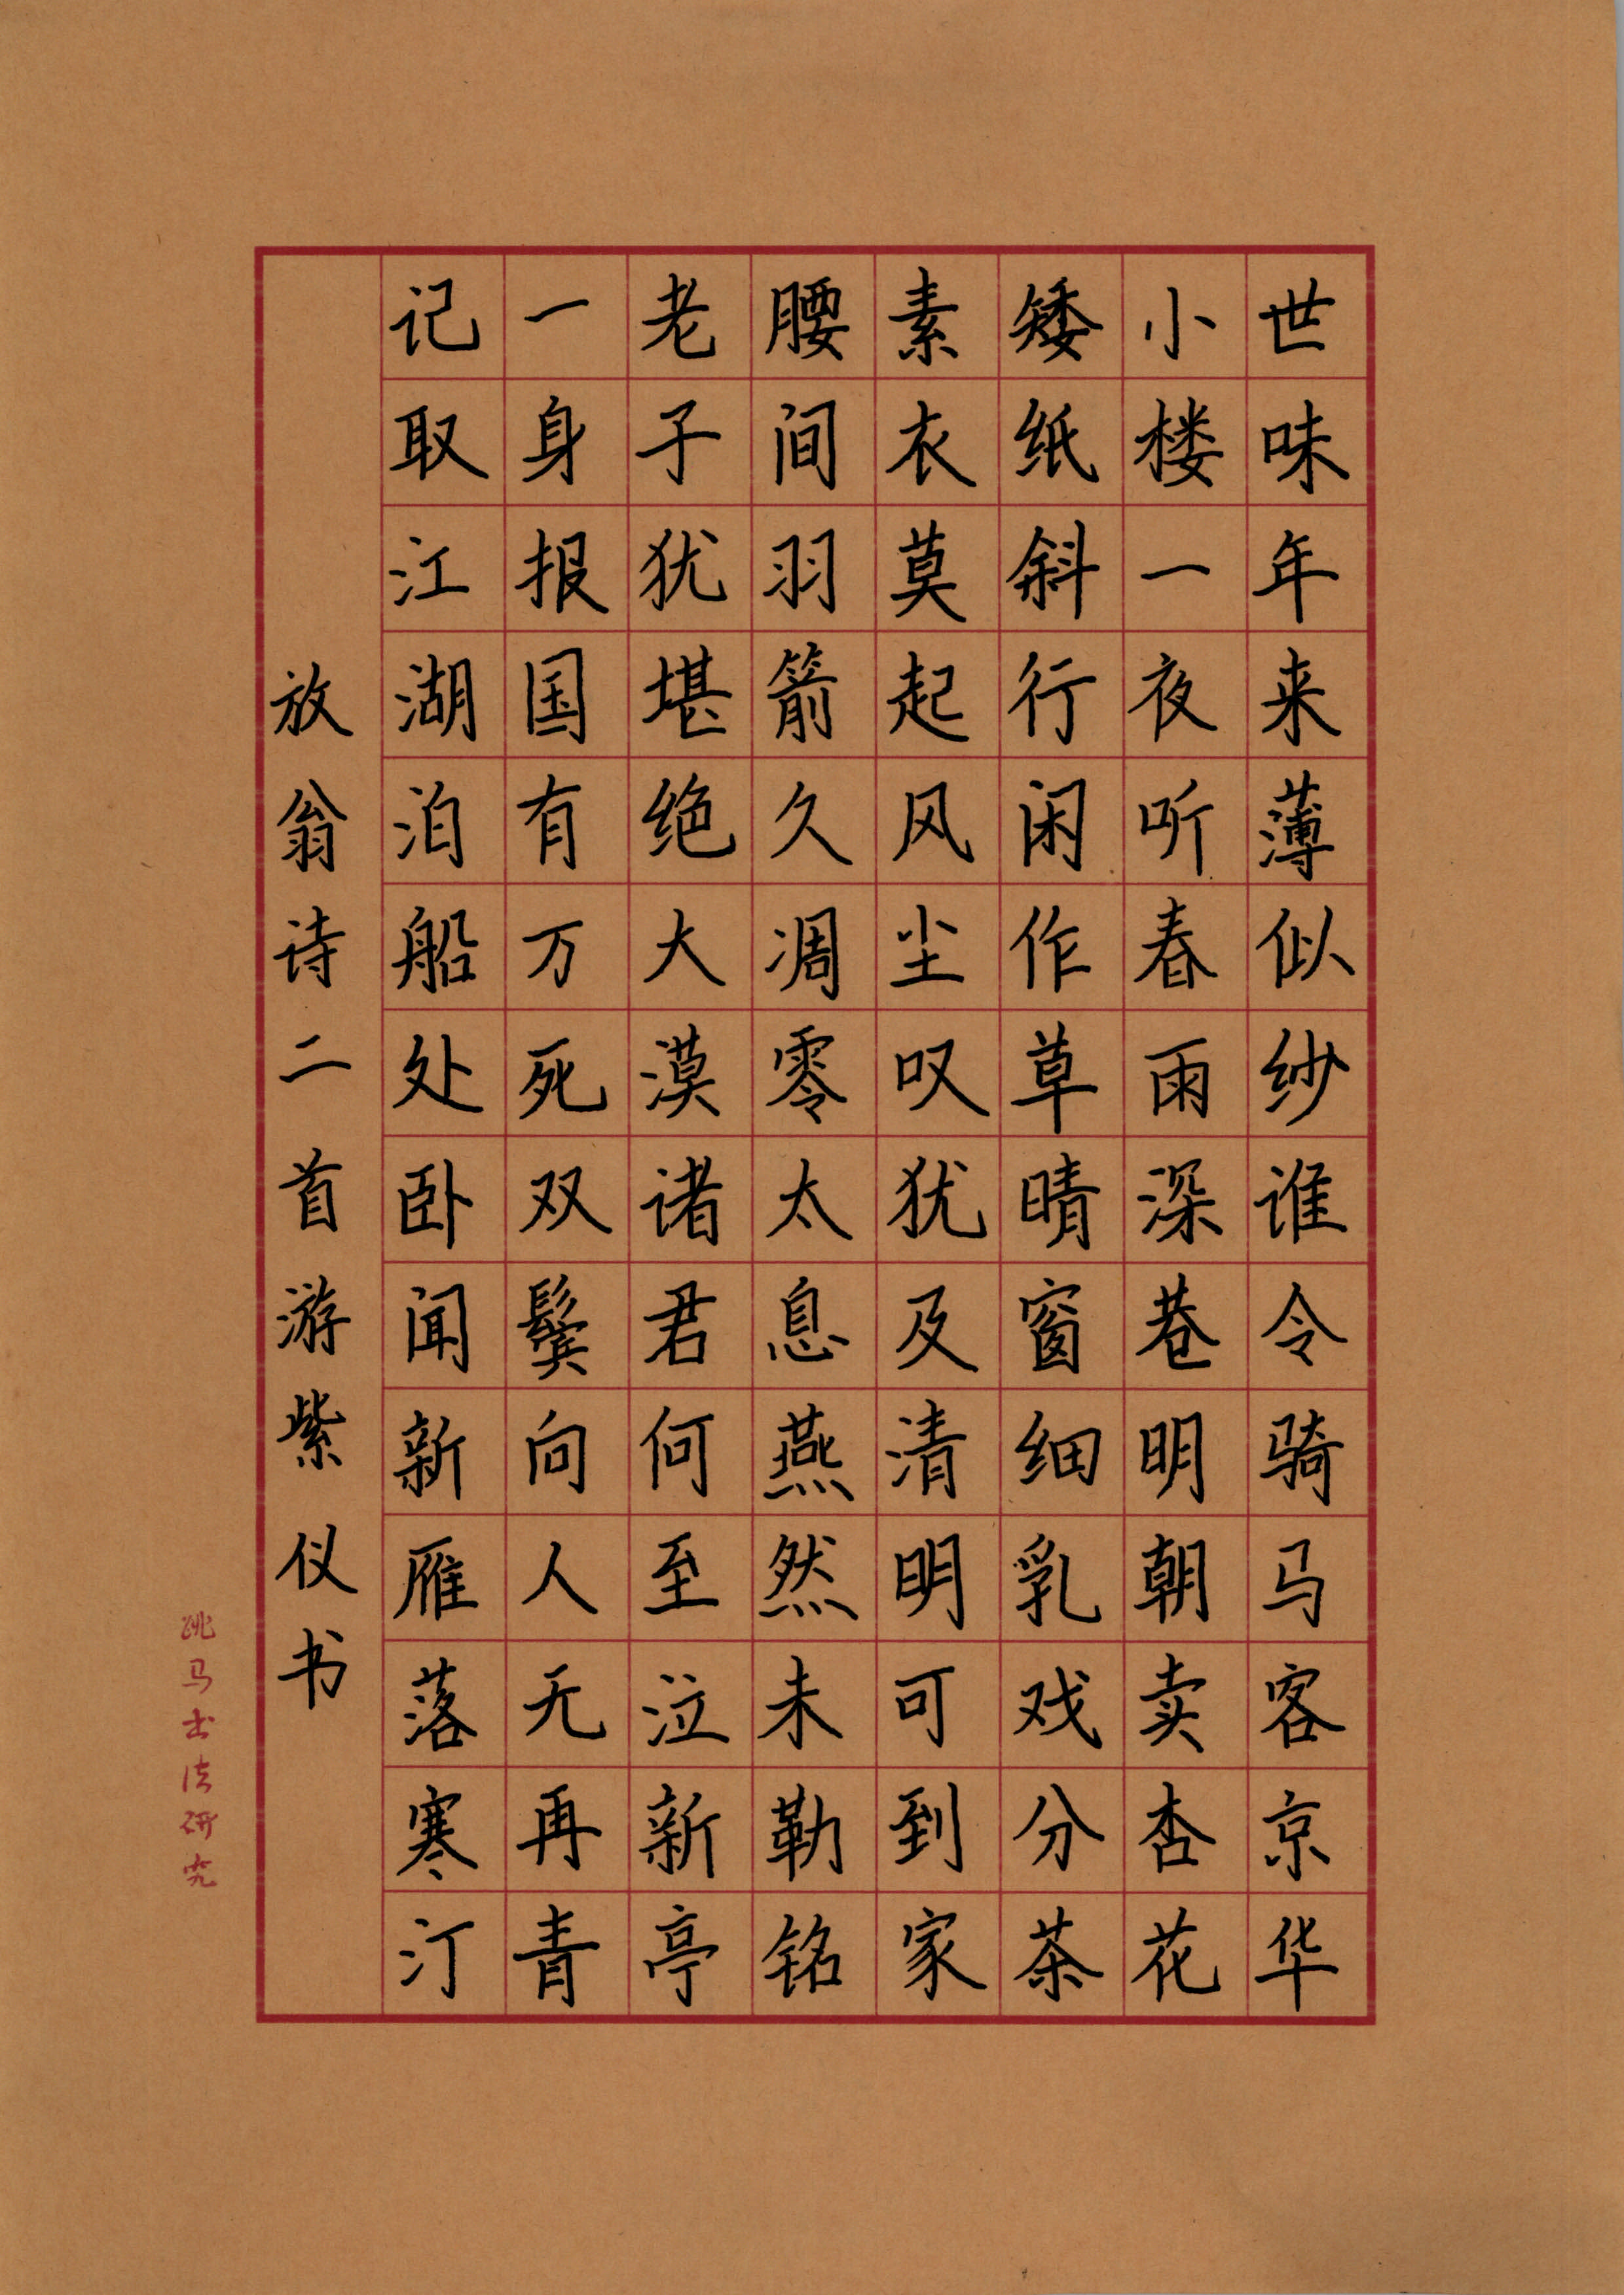 世味年来薄似纱谁令骑马客京华
小楼一夜听春雨深巷明朝卖杏花
矮纸斜行闲作草晴窗细乳戏分茶
素衣莫起风尘叹犹及清明可到家
腰间羽箭久凋零太息燕然未勒铭
老子犹堪绝大漠诸君何至泣新亭
一身报国有万死双鬓向人无再青
记取江湖泊船处卧闻新雁落寒汀
放翁诗二首游紫仪书
跳马书法研究